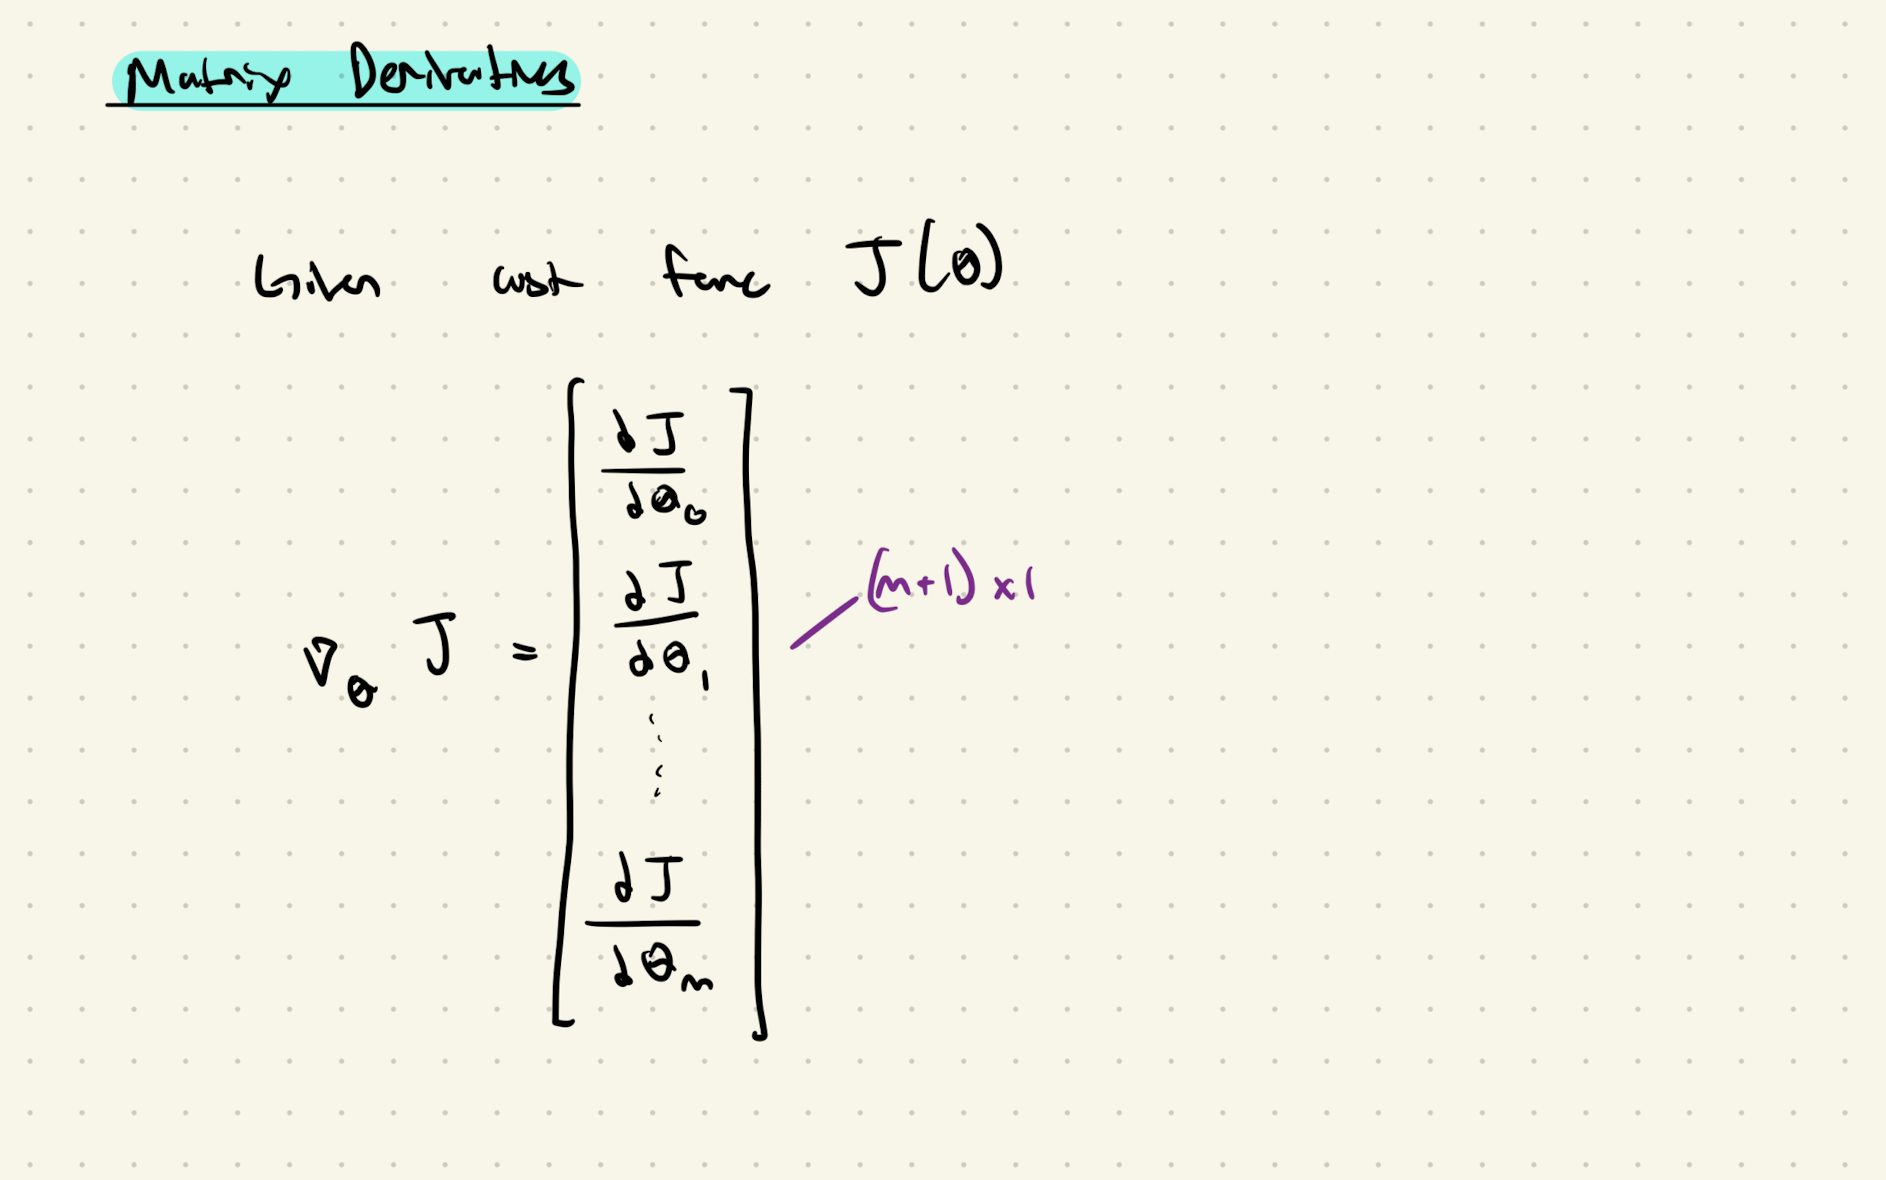 Matrix Derivatives
Given cost func J(θ)
∇_θ J = [ dJ/dθ_0
dJ/dθ_1
⋮
dJ/dθ_n ]
(n+1) x1